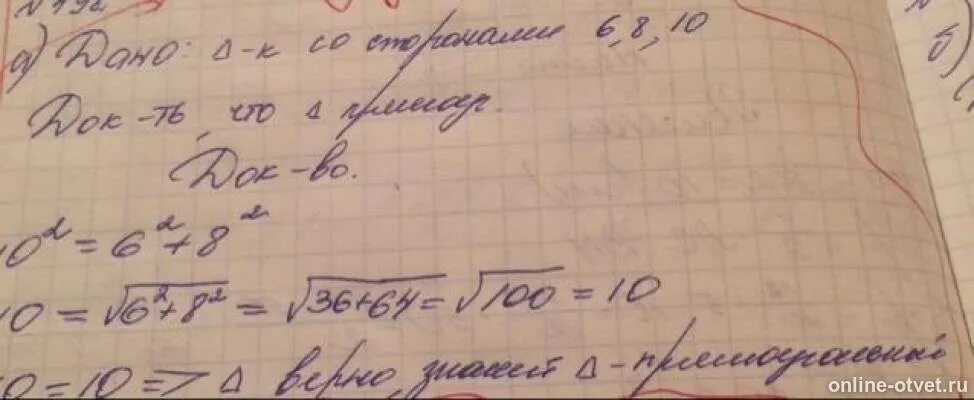 а) Дано: Δ-к со сторонами 6, 8, 10
Док-ть, что Δ прямоуг.
Док-во.
10² = 6² + 8²
10 = √6²+8² = √36+64 = √100 = 10
10 = 10 => Δ верно, значит Δ-прямоугольный
б)
online-otvet.ru